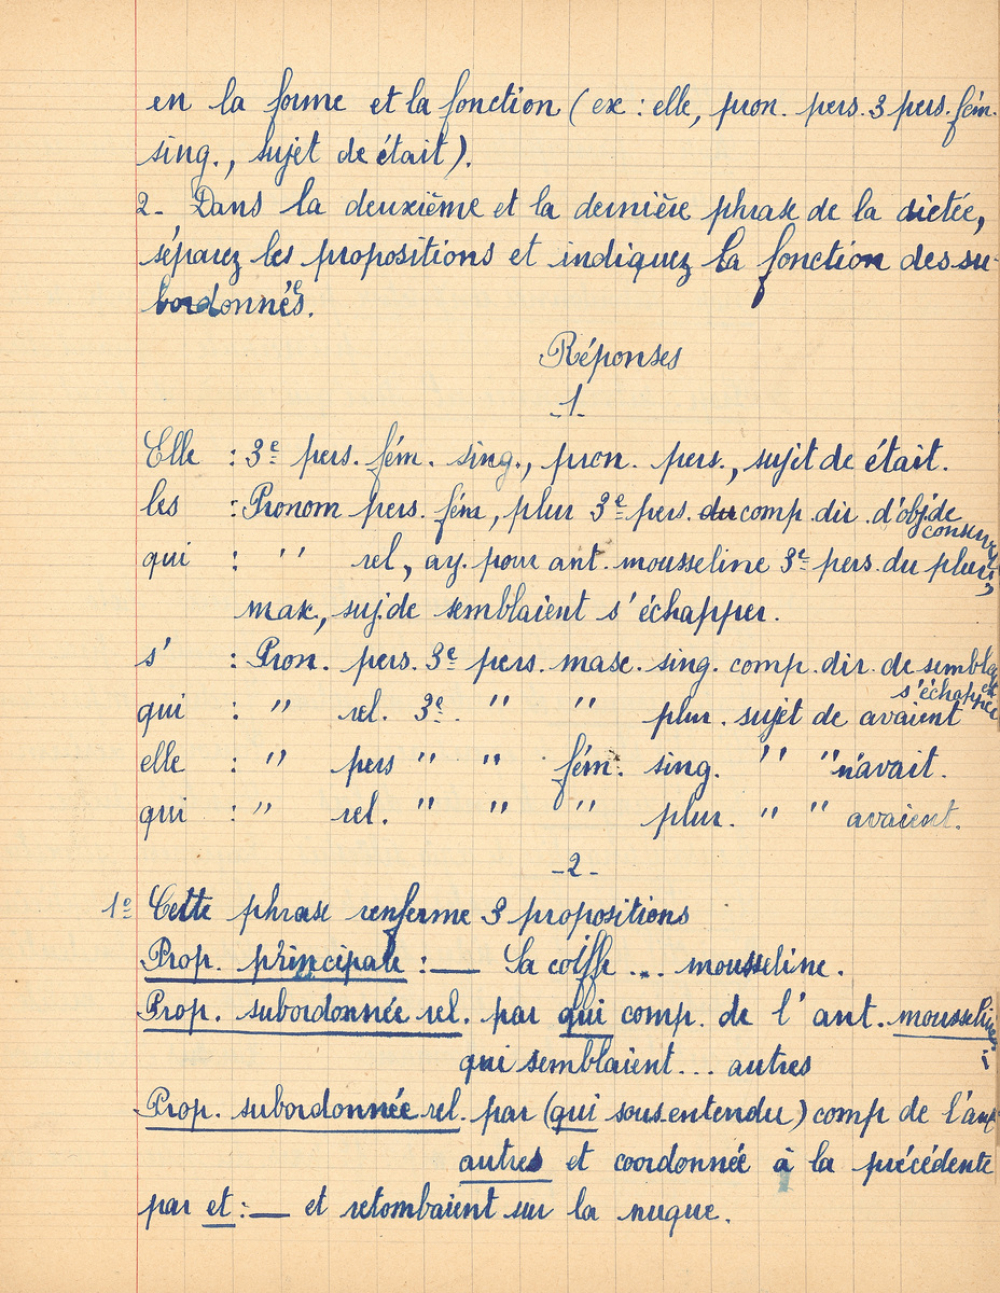 en la forme et la fonction (ex : elle, pron. pers. 3 pers. fém.
sing., sujet de était).
2- Dans la deuxième et la dernière phrase de la dictée,
séparez les propositions et indiquez la fonction des su-
bordonnées.
Réponses
-1-
Elle : 3e pers. fém. sing., pron. pers., sujet de était.
les : Pronom pers. fém, plur 3e pers. du comp. dir. d'obj. de
conserv
qui : " rel, ay. pour ant. mousseline 3e pers. du pluri
mas., suj. de semblaient s'échapper.
s' : Pron. pers. 3e pers. masc. sing. comp. dir. de sembla
s'échapper
qui : " rel. 3e. " " plur. sujet de avaient
elle : " pers " " fém. sing. " " n'avait.
qui : " rel. " " " plur. " " avaient.
-2-
1º Cette phrase renferme 3 propositions
Prop. principale : — La coiffe ... mousseline.
Prop. subordonnée rel. par qui comp. de l'ant. mousseline
qui semblaient ... autres
Prop. subordonnée rel. par (qui sous-entendu) comp de l'ant
autres et coordonnée à la précédente
par et : — et retombaient sur la nuque.